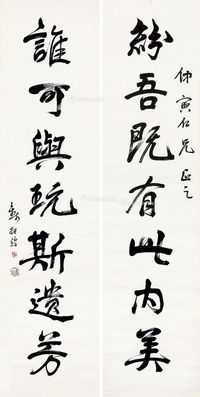 紛吾既有此內美
仲寅仁兄正之
誰可與玩斯遺芳